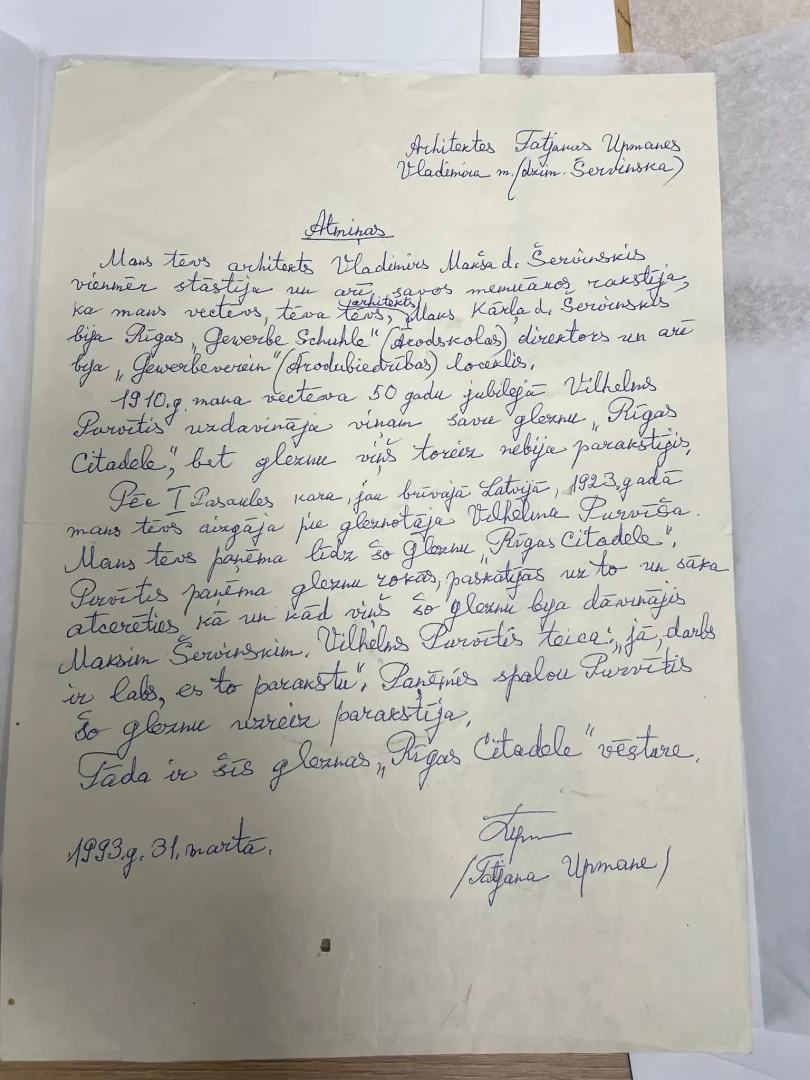 Arhitektes Tatjanas Upmanes
Vladimira m. (dzim. Šervinska)
Atmiņas
Mans tēvs arhitekts Vladimirs Makša d. Šervinskis
vienmēr stāstīja un arī savos memuāros rakstīja,
ka mans vectēvs, tēva tēvs, arhitekts, Maks Kārļa d. Šervinskis
bija Rīgas „Gewerbe Schuhle" (Arodskolas) direktors un arī
bija „Gewerbeverein" (Arodubiedrības) loceklis.
1910.g. mana vectēva 50 gadu jubilejā Vilhelms
Purvītis uzdavināja viņam savu gleznu „Rīgas
Citadele", bet gleznu viņš toreiz nebija parakstījis.
Pēc I Pasaules kara, jau brīvajā Latvijā, 1923.gadā
mans tēvs aizgāja pie gleznotāja Vilhelma Purvīša.
Mans tēvs paņēma līdz šo gleznu „Rīgas Citadele".
Purvītis paņēma gleznu rokās, paskatījās uz to un sāka
atcerēties, kā un kād viņš šo gleznu bija dāvinājis
Maksim Šervinskim. Vilhelms Purvītis teica: „jā, darbs
ir labs, es to parakstu". Paņēmis spalvu Purvītis
šo gleznu uzreiz parakstīja.
Tāda ir šīs gleznas „Rīgas Citadele" vēsture.
1993.g. 31. martā.
(Tatjana Upmane)